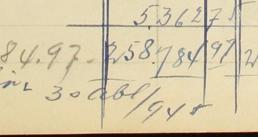 5.36275
84.97. 258.784 97 2
30 abl/945